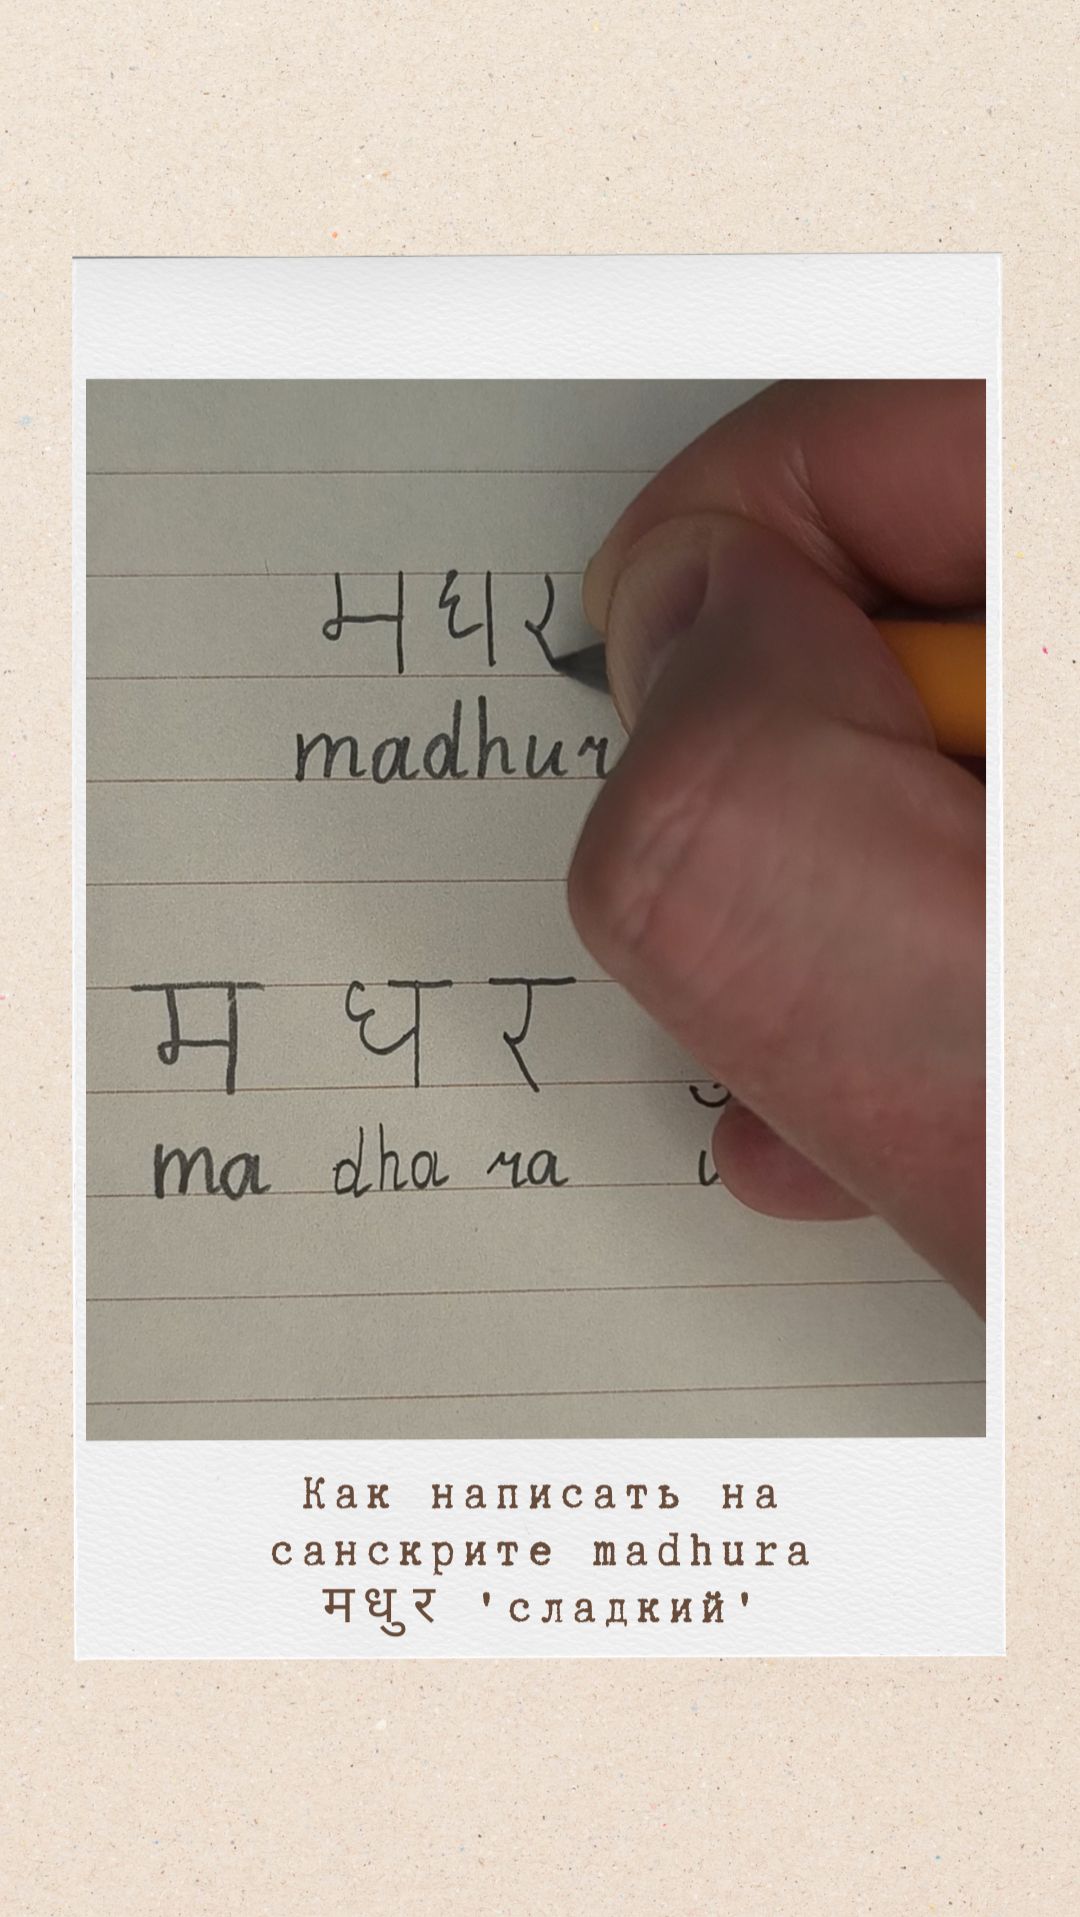 मधर
madhur
म ध र ु
ma dha ra u
Как написать на
санскрите madhura
मधुर 'сладкий'